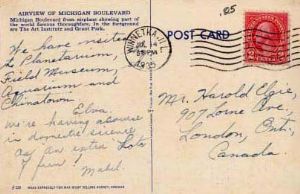 AIRVIEW OF MICHIGAN BOULEVARD
Michigan Boulevard from airplane showing part of
the world famous thoroughfare. In the foreground
are The Art Institute and Grant Park.
We have visited
the Planetarium,
Field Museum,
Aquarium and
Chinatown.
Elva.
We're having a course
in domestic science
as an extra. Lots
of fun!
Mabel.
POST CARD
WINNETKA, ILL.
JUL
Mr. Harold Elgie,
907 Lorne Ave.,
London, Ont.,
Canada